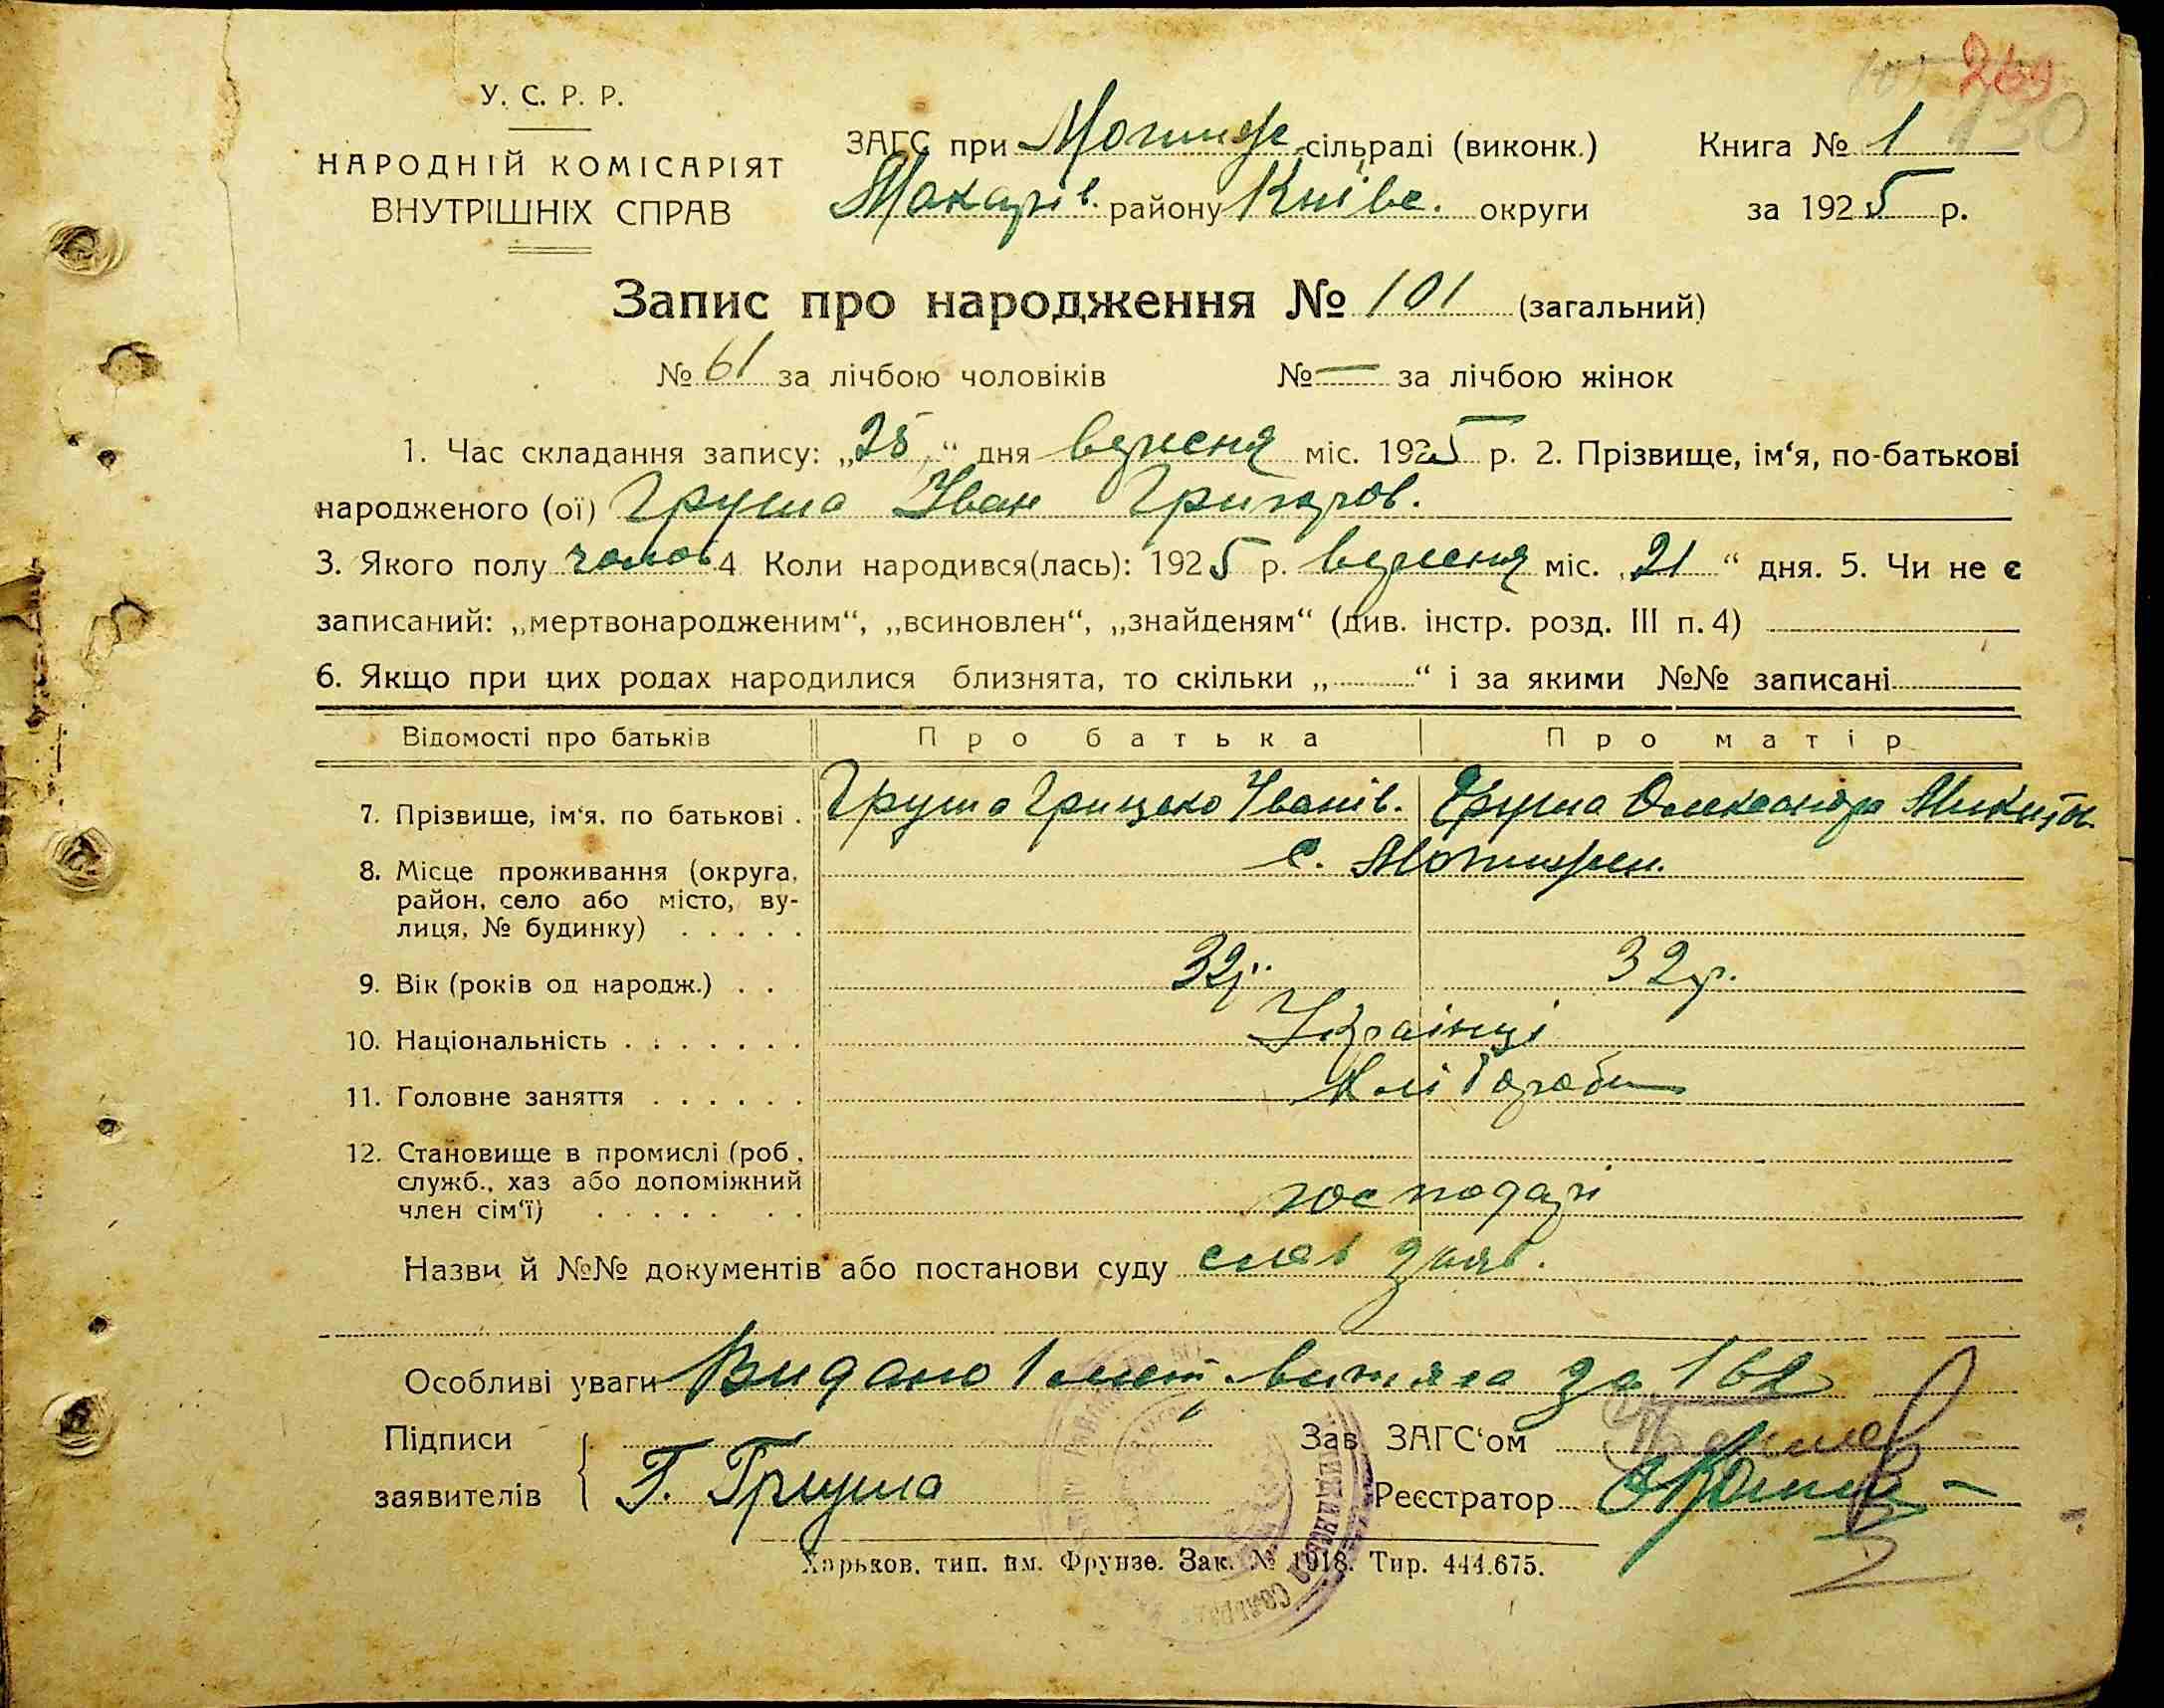 269
130
У. С. Р. Р.
НАРОДНІЙ КОМІСАРІЯТ
ВНУТРІШНІХ СПРАВ
ЗАГС при Мотиж сільраді (виконк.)
Макарів. району Київс. округи
Книга № 1
за 1925 р.
Запис про народження № 101 (загальний)
№ 61 за лічбою чоловіків № — за лічбою жінок
1. Час складання запису: „25“ дня вересня міс. 1925 р. 2. Прізвище, ім‘я, по-батькові
народженого (ої) Груша Іван Григоров.
3. Якого полу чолов 4 Коли народився(лась): 1925 р. вересня міс. „21“ дня. 5. Чи не є
записаний: „мертвонародженим“, „всиновлен“, „знайденям“ (див. інстр. розд. III п. 4)
6. Якщо при цих родах народилися близнята, то скільки „ “ і за якими №№ записані
Відомості про батьків Про батька Про матір
7. Прізвище, ім‘я, по батькові . Груша Грицько Іванів. Груша Олександра Микит.
8. Місце проживання (округа, с. Мотижен.
район, село або місто, ву-
лиця, № будинку) . . . . .
9. Вік (років од народж.) . . 32р. 32р.
10. Національність . . . . . . . Українці
11. Головне заняття . . . . . . Хліборобн
12. Становище в промислі (роб.,
служб., хаз або допоміжний господарі
член сім‘ї) . . . . . . .
Назви й №№ документів або постанови суду слов заяв.
Особливі уваги Видано 1 лист витяга за 162
Підписи Зав ЗАГС‘ом
заявителів Г. Груша Реєстратор
Харьков, тип. им. Фрунзе. Зак. № 1918. Тир. 444.675.